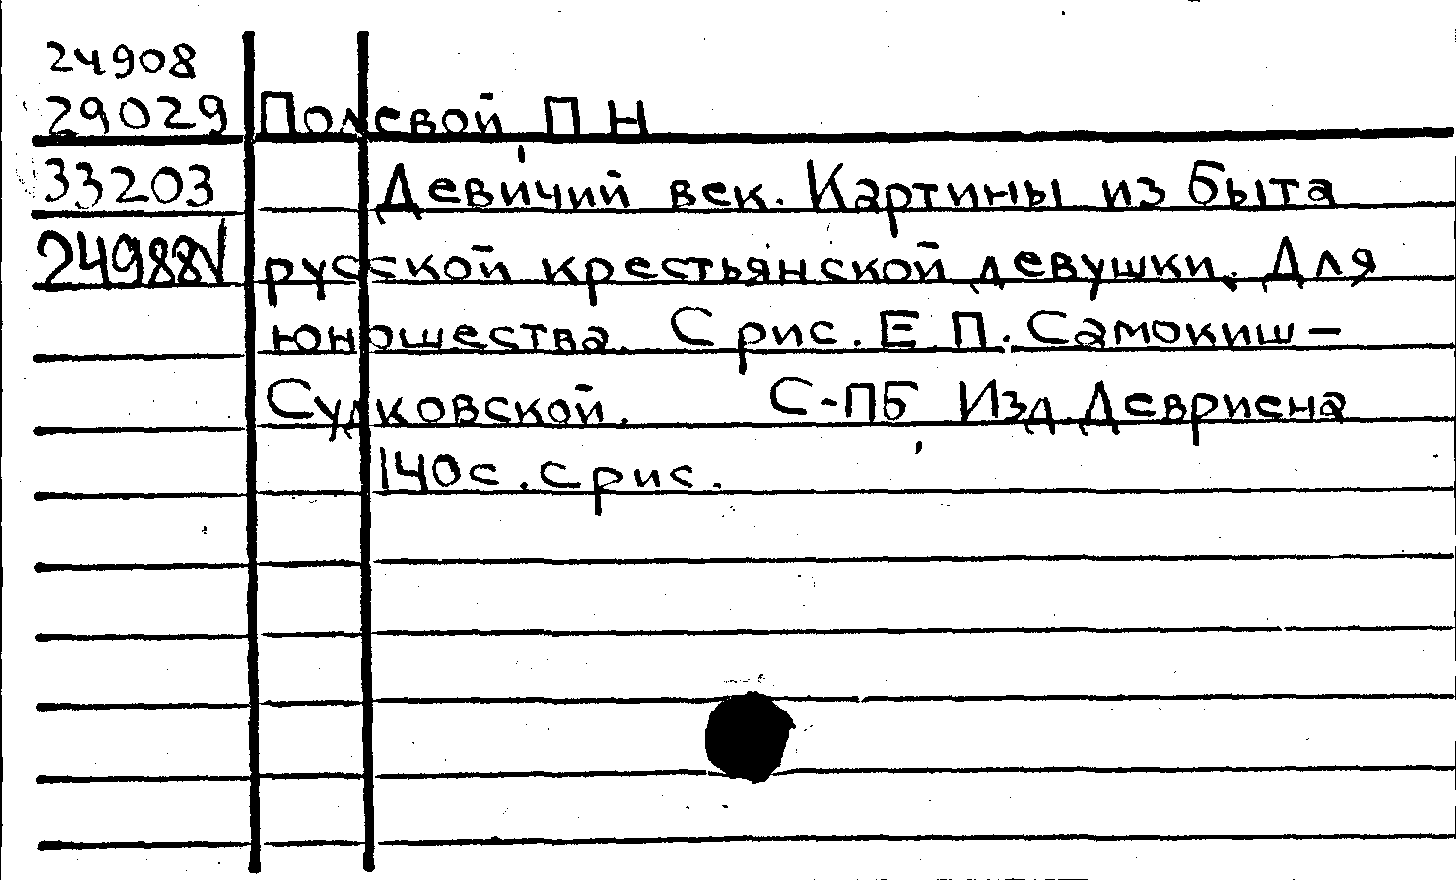 24908
29029 Полевой, П Н
33203 Девичий век. Картины из быта
24988V русской крестьянской девушки. Для
юношества. С рис. Е. П. Самокиш-
Судковской. С-ПБ Изд. Девриена,
140с. с рис.